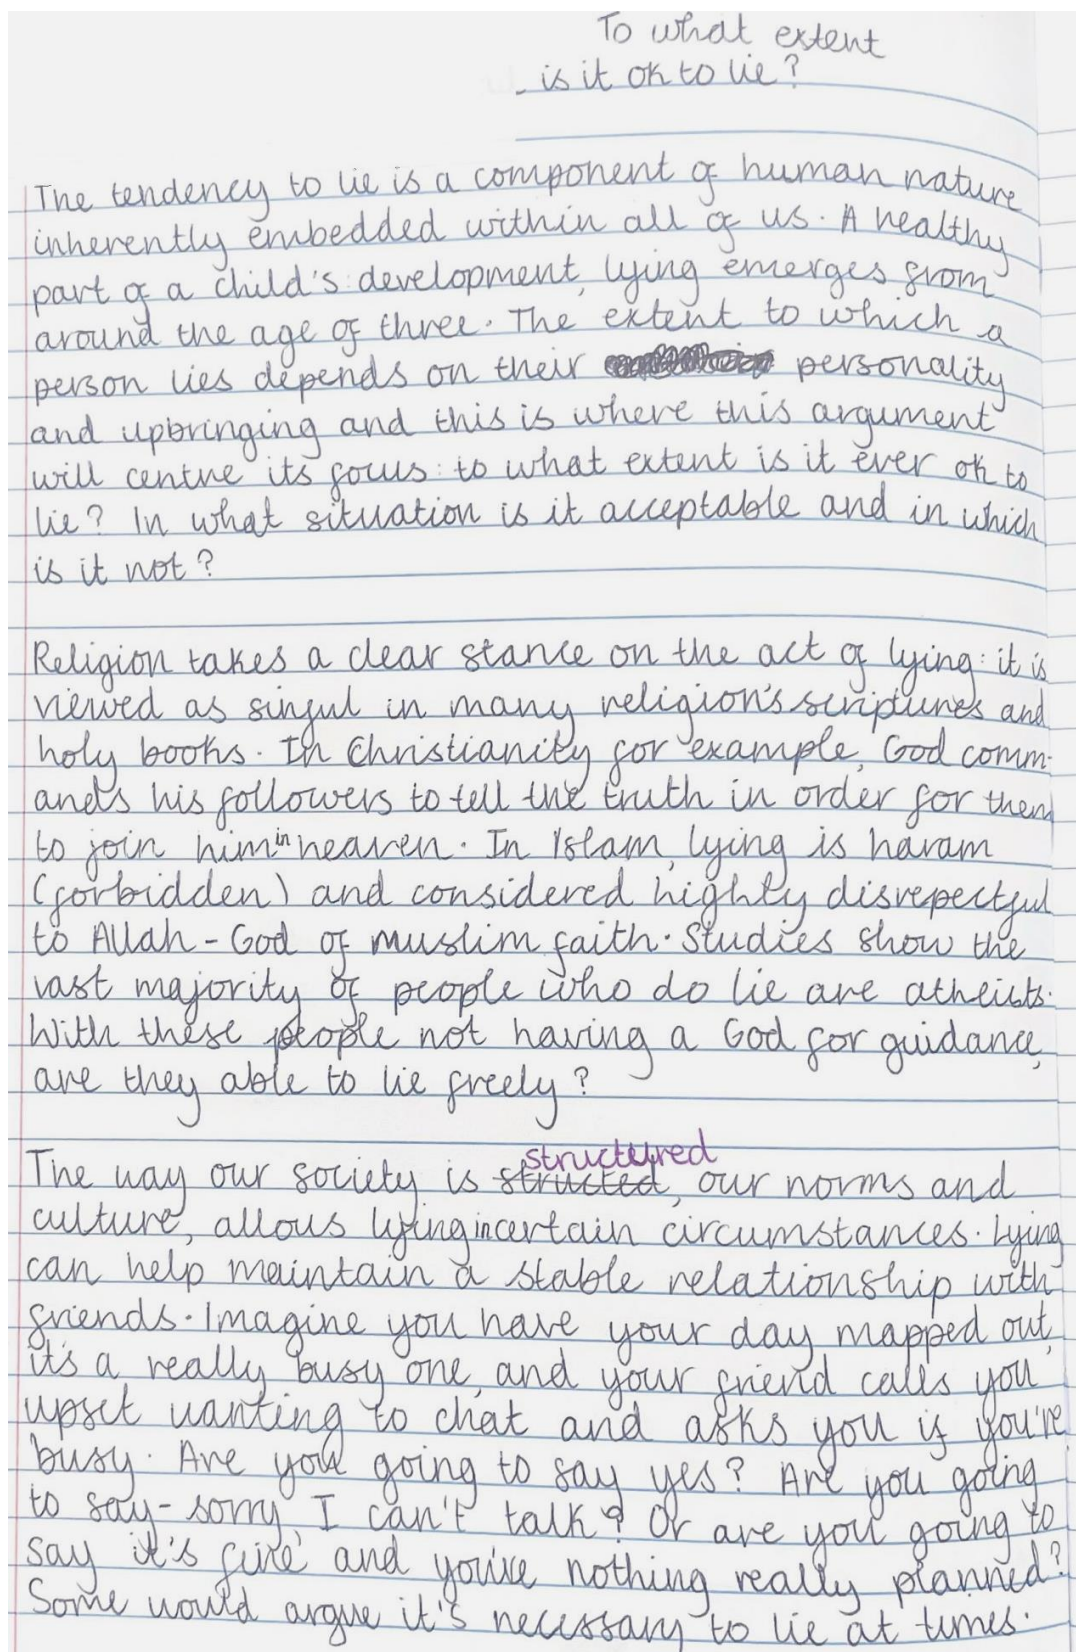 To what extent
is it ok to lie?
The tendency to lie is a component of human nature
inherently embedded within all of us. A healthy
part of a child's development, lying emerges from
around the age of three. The extent to which a
person lies depends on their personality
and upbringing and this is where this argument
will centre its focus: to what extent is it ever ok to
lie? In what situation is it acceptable and in which
is it not?
Religion takes a clear stance on the act of lying: it is
viewed as sinful in many religion's scriptures and
holy books. In Christianity for example, God comm-
ands his followers to tell the truth in order for them
to join him in heaven. In Islam, lying is haram
(forbidden) and considered highly disrepectful
to Allah - God of muslim faith. Studies show the
vast majority of people who do lie are atheists.
With these people not having a God for guidance,
are they able to lie freely?
structured
The way our society is structed, our norms and
culture, allows lying in certain circumstances. Lying
can help maintain a stable relationship with
friends. Imagine you have your day mapped out,
it's a really busy one, and your friend calls you
upset wanting to chat and asks you if you're
busy. Are you going to say yes? Are you going
to say - sorry, I can't talk? Or are you going to
say it's fine and you've nothing really planned?
Some would argue it's necessary to lie at times.